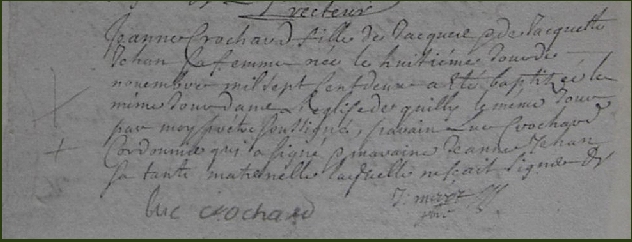 recteur
Jeanne Crochard fille de Jacques & de Jacquette
Jehan Sa femme née le huitiéme Jour de
novembre mil sept Cent deux a été baptisée le
mime Jour dans l'Eglise de quilly le même Jour
par moy prêtre soussigné, parain Luc Crochard
Cordonnier qui a Signé & maraine Jeanne Jehan
Sa tante maternelle laquelle ne sçait Signer &
luc crochard